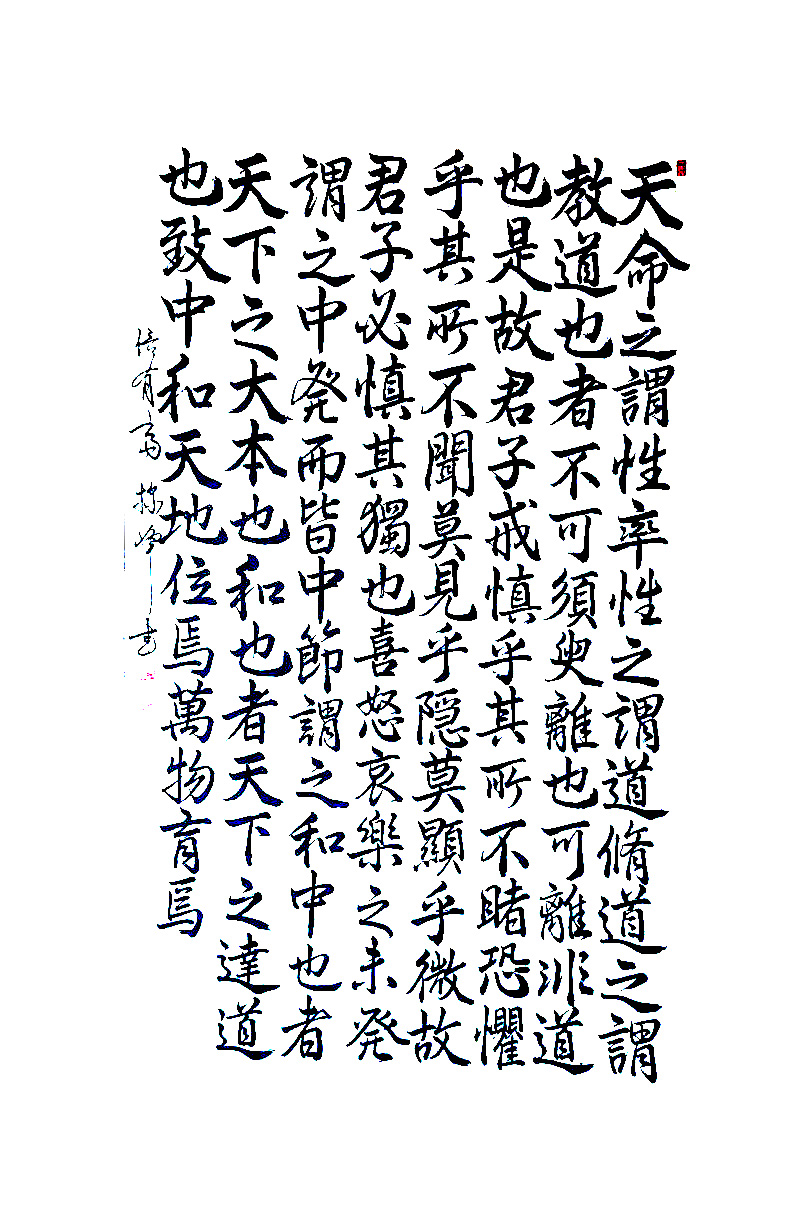 天命之謂性率性之謂道脩道之謂
教道也者不可須臾離也可離非道
也是故君子戒慎乎其所不睹恐懼
乎其所不聞莫見乎隠莫顯乎微故
君子必慎其獨也喜怒哀樂之未発
謂之中発而皆中節謂之和中也者
天下之大本也和也者天下之達道
也致中和天地位焉萬物育焉
書